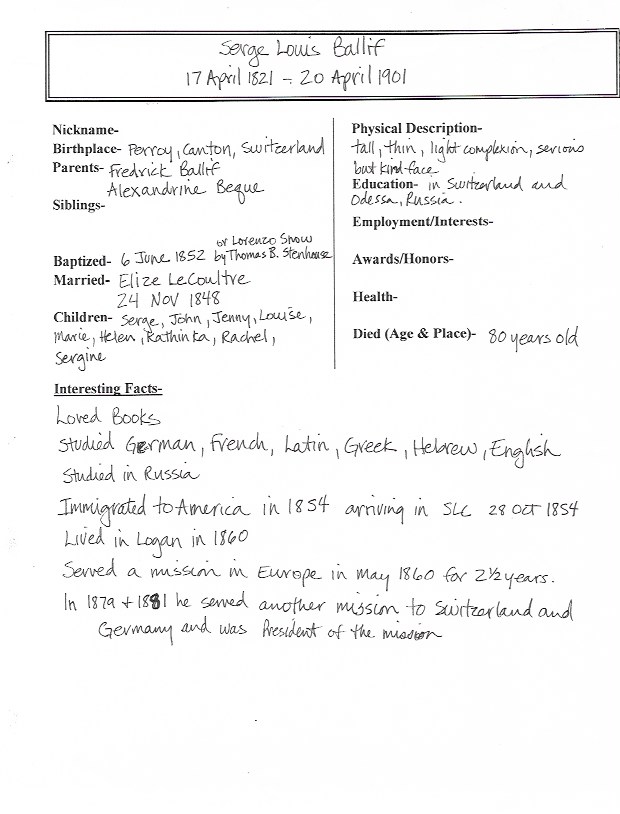 Serge Louis Ballif
17 April 1821 - 20 April 1901
Nickname-
Birthplace- Perroy, Canton, Switzerland
Parents- Fredrick Ballif
Alexandrine Beque
Siblings-
or Lorenzo Snow
Baptized- 6 June 1852 by Thomas B. Stenhouse
Married- Elize LeCoultre
24 NOV 1848
Children- Serge, John, Jenny, Louise,
Marie, Helen, Kathinka, Rachel,
Sergine
Physical Description-
tall, thin, light complexion, serious
but kind-face
Education- in Switzerland and
Odessa, Russia.
Employment/Interests-
Awards/Honors-
Health-
Died (Age & Place)- 80 years old
Interesting Facts-
Loved Books
Studied German, French, Latin, Greek, Hebrew, English
Studied in Russia
Immigrated to America in 1854 arriving in SLC 28 OCT 1854
Lived in Logan in 1860
Served a mission in Europe in May 1860 for 2½ years.
In 1879 + 1881 he served another mission to Switzerland and
Germany and was President of the mission